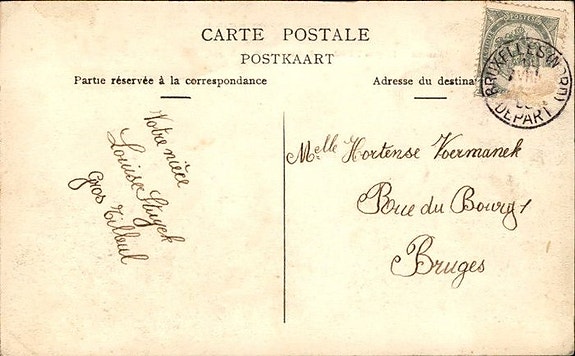 CARTE POSTALE
POSTKAART
Partie réservée à la correspondance
Adresse du destinat
POSTES
BRUXELLES (NORD)
DEPART
Votre nièce
Louise Stuyck
Gros Tilleul
Melle Hortense Voermanek
Rue du Bourg 1
Bruges